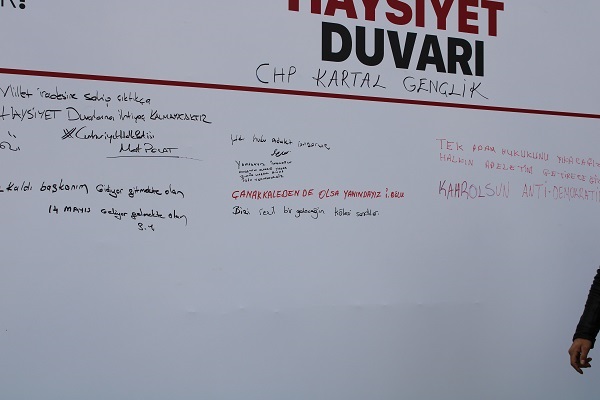 HAYSİYET
DUVARI
CHP KARTAL GENÇLİK
Millet iradesine sahip çıktıkça
HAYSİYET Duvarlarına ihtiyaç KALMAYACAKTIR
#CumhuriyetHalkEdisi
Mert POLAT
kaldı başkanım Gidiyor gitmekte olan
14 MAYIS Geliyor gelmekte olan
S.Y
Hak hukuk adalet istiyoruz
ÇANAKKALEDEN DE OLSA YANINDAYIZ İ.OĞLU
Bizi reil bir geleceğin kölesi sandılar.
TEK ADAM HUKUKUNU YIKACAĞIZ
HALKIN ADELETİNİ GETİRECEĞİZ
KAHROLSUN ANTİ-DEMOKRATİ